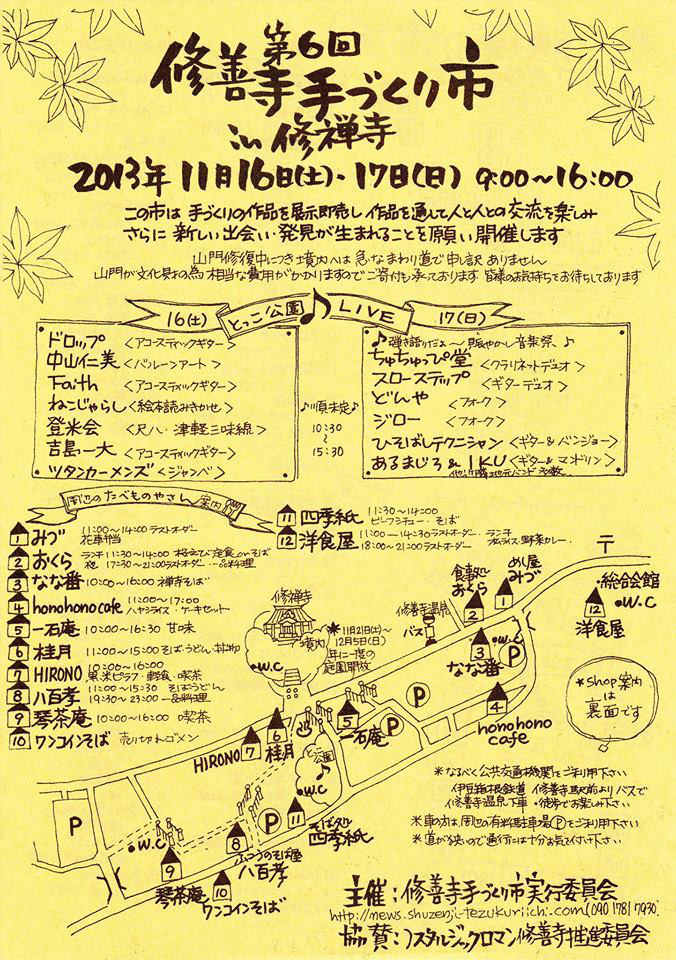 第6回
修善寺手づくり市
in 修禅寺
2013年 11月16日(土)・17日(日) 9:00〜16:00
この市は 手づくりの作品を展示即売し 作品を通して人と人との交流を楽しみ
さらに 新しい出会い・発見が生まれることを願い開催します
山門修復中につき境内へは 急なまわり道で申し訳ありません
山門が文化財の為 相当な費用がかかりますのでご寄付も承っております 皆様のお気持ちをお待ちしております
16(土) とっこ公園 ♪ LIVE 17(日)
ドロップ <アコースティックギター>
中山仁美 <バルーンアート>
Faith <アコースティックギター>
ねこじゃらし <絵本読みきかせ>
登米会 <尺八・津軽三味線>
吉島一大 <アコースティックギター>
ツタンカーメンズ <ジャンベ>
♪順未定♪
10:30
〜
15:30
♪ 弾き語りだよ〜賑やかし音楽祭 ♪
ちゅちゅっぴ堂 <クラリネットデュオ>
スローステップ <ギターデュオ>
どんや <フォーク>
ジロー <フォーク>
ひそばしテクニシャン <ギター&バンジョー>
あるまじろ& IKU <ギター&マンドリン>
他 近隣地元バンド 多数
周辺のたべものやさん案内
1 みづ 11:00〜14:00ラストオーダー
花車弁当
2 おくら ランチ11:30〜14:00 格立び定食 or そば
夜 17:30〜21:00ラストオーダー 一品料理
3 なな番 10:00〜16:00 禅寺そば
4 honohono cafe 11:00〜17:00
ハヤシライス・ケーキセット
5 一石庵 10:00〜16:30 甘味
6 桂月 11:00〜15:00 そば・うどん 丼物
7 HIRONO 10:00〜16:00
黒米ピラフ・軽食・喫茶
8 八百孝 11:00〜15:30 そばうどん
19:30〜23:00 一品料理
9 琴茶庵 10:00〜16:00 喫茶
10 ワンコインそば 売り切れゴメン
11 四季紙 11:30〜14:00
ビーフシチュー・そば
12 洋食屋 11:00〜14:30ラストオーダー・ランチ
オムライス・野菜カレー
18:00〜21:00ラストオーダー
〒
総合会館
W.C
12
洋食屋
めし屋
みづ
1
食事処
おくら
2
修善寺温泉
バス
3
W.C
なな番
P
4
honohono
cafe
修禅寺
境内
※11月21日(土)〜
12月5日(日)
年に一度の
庭園開放
W.C
P
P
5
一石庵
6
桂月
HIRONO 7
と公園
♪
W.C
11
そばタル
四季紙
P
8
ふつうのそば屋
八百孝
P
W.C
9
琴茶庵
10
ワンコインそば
※shop案内
は
裏面です
※なるべく公共交通機関をご利用下さい
伊豆箱根鉄道 修善寺駅前よりバスで
修善寺温泉下車・徒歩でお楽しみ下さい
※車の方は周辺の有料駐車場Ⓟをご利用下さい
※道が狭いので通行には十分お気を付け下さい
主催:修善寺手づくり市実行委員会
http://news.shuzenji-tezukuriichi.com (090 1781 7930)
協賛:ノスタルジックロマン修善寺推進委員会